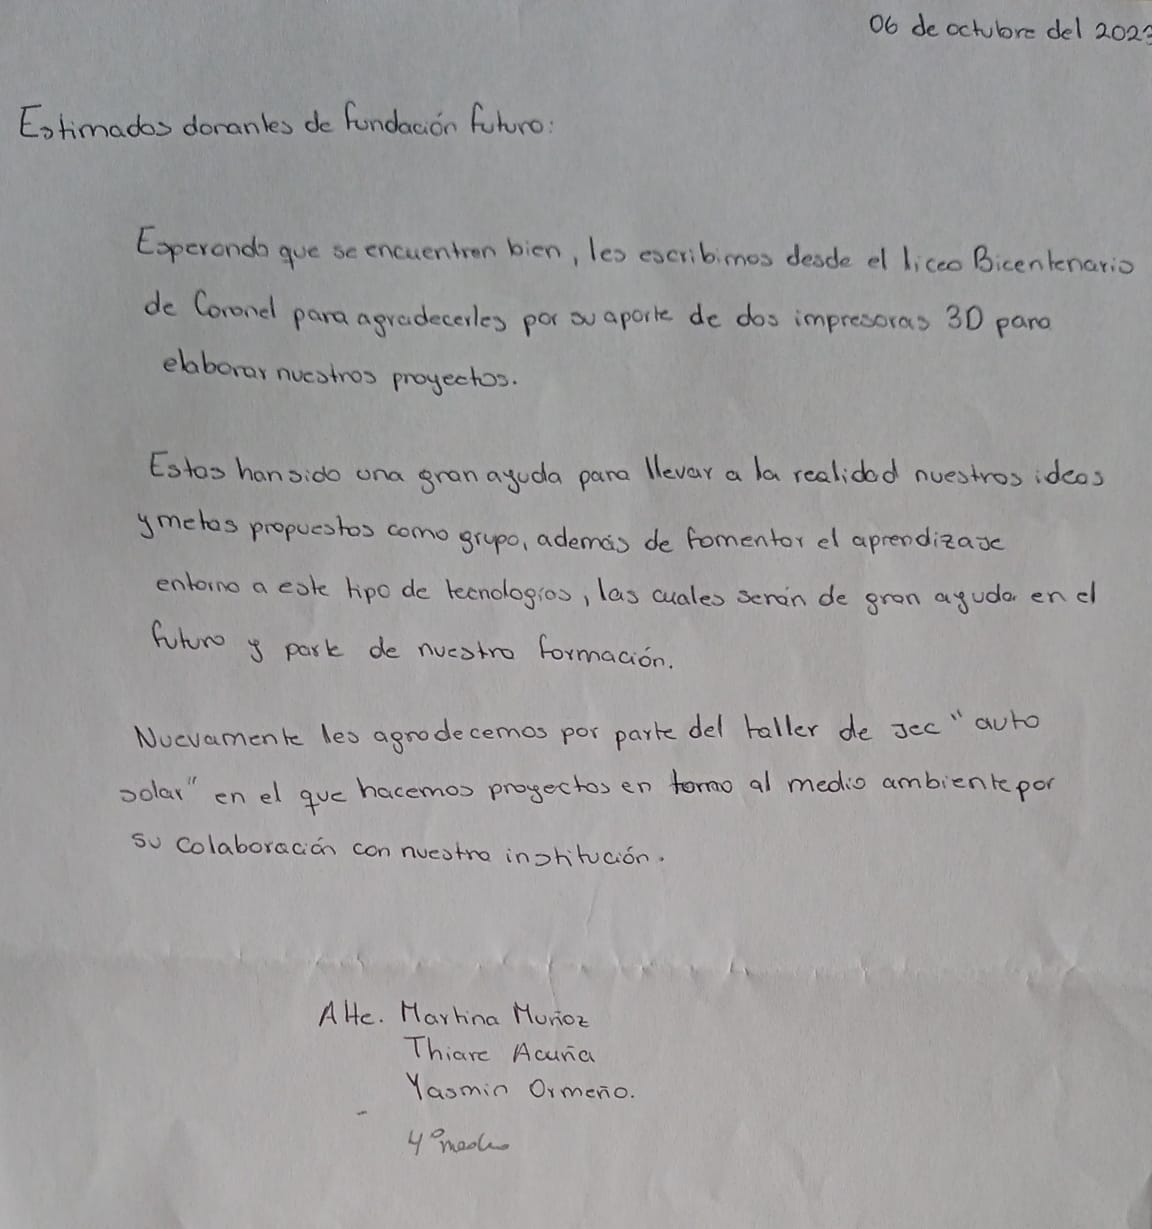 06 de octubre del 2023
Estimados donantes de fundación futuro:
Esperando que se encuentren bien, les escribimos desde el liceo Bicentenario
de Coronel para agradecerles por su aporte de dos impresoras 3D para
elaborar nuestros proyectos.
Estas han sido una gran ayuda para llevar a la realidad nuestras ideas
y metas propuestas como grupo, además de fomentar el aprendizaje
entorno a este tipo de tecnologías, las cuales serán de gran ayuda en el
futuro y parte de nuestra formación.
Nuevamente les agradecemos por parte del taller de Jec "auto
solar" en el que hacemos proyectos en torno al medio ambiente por
su colaboración con nuestra institución.
Atte. Martina Muñoz
Thiare Acuña
Yasmin Ormeño.
4° medio